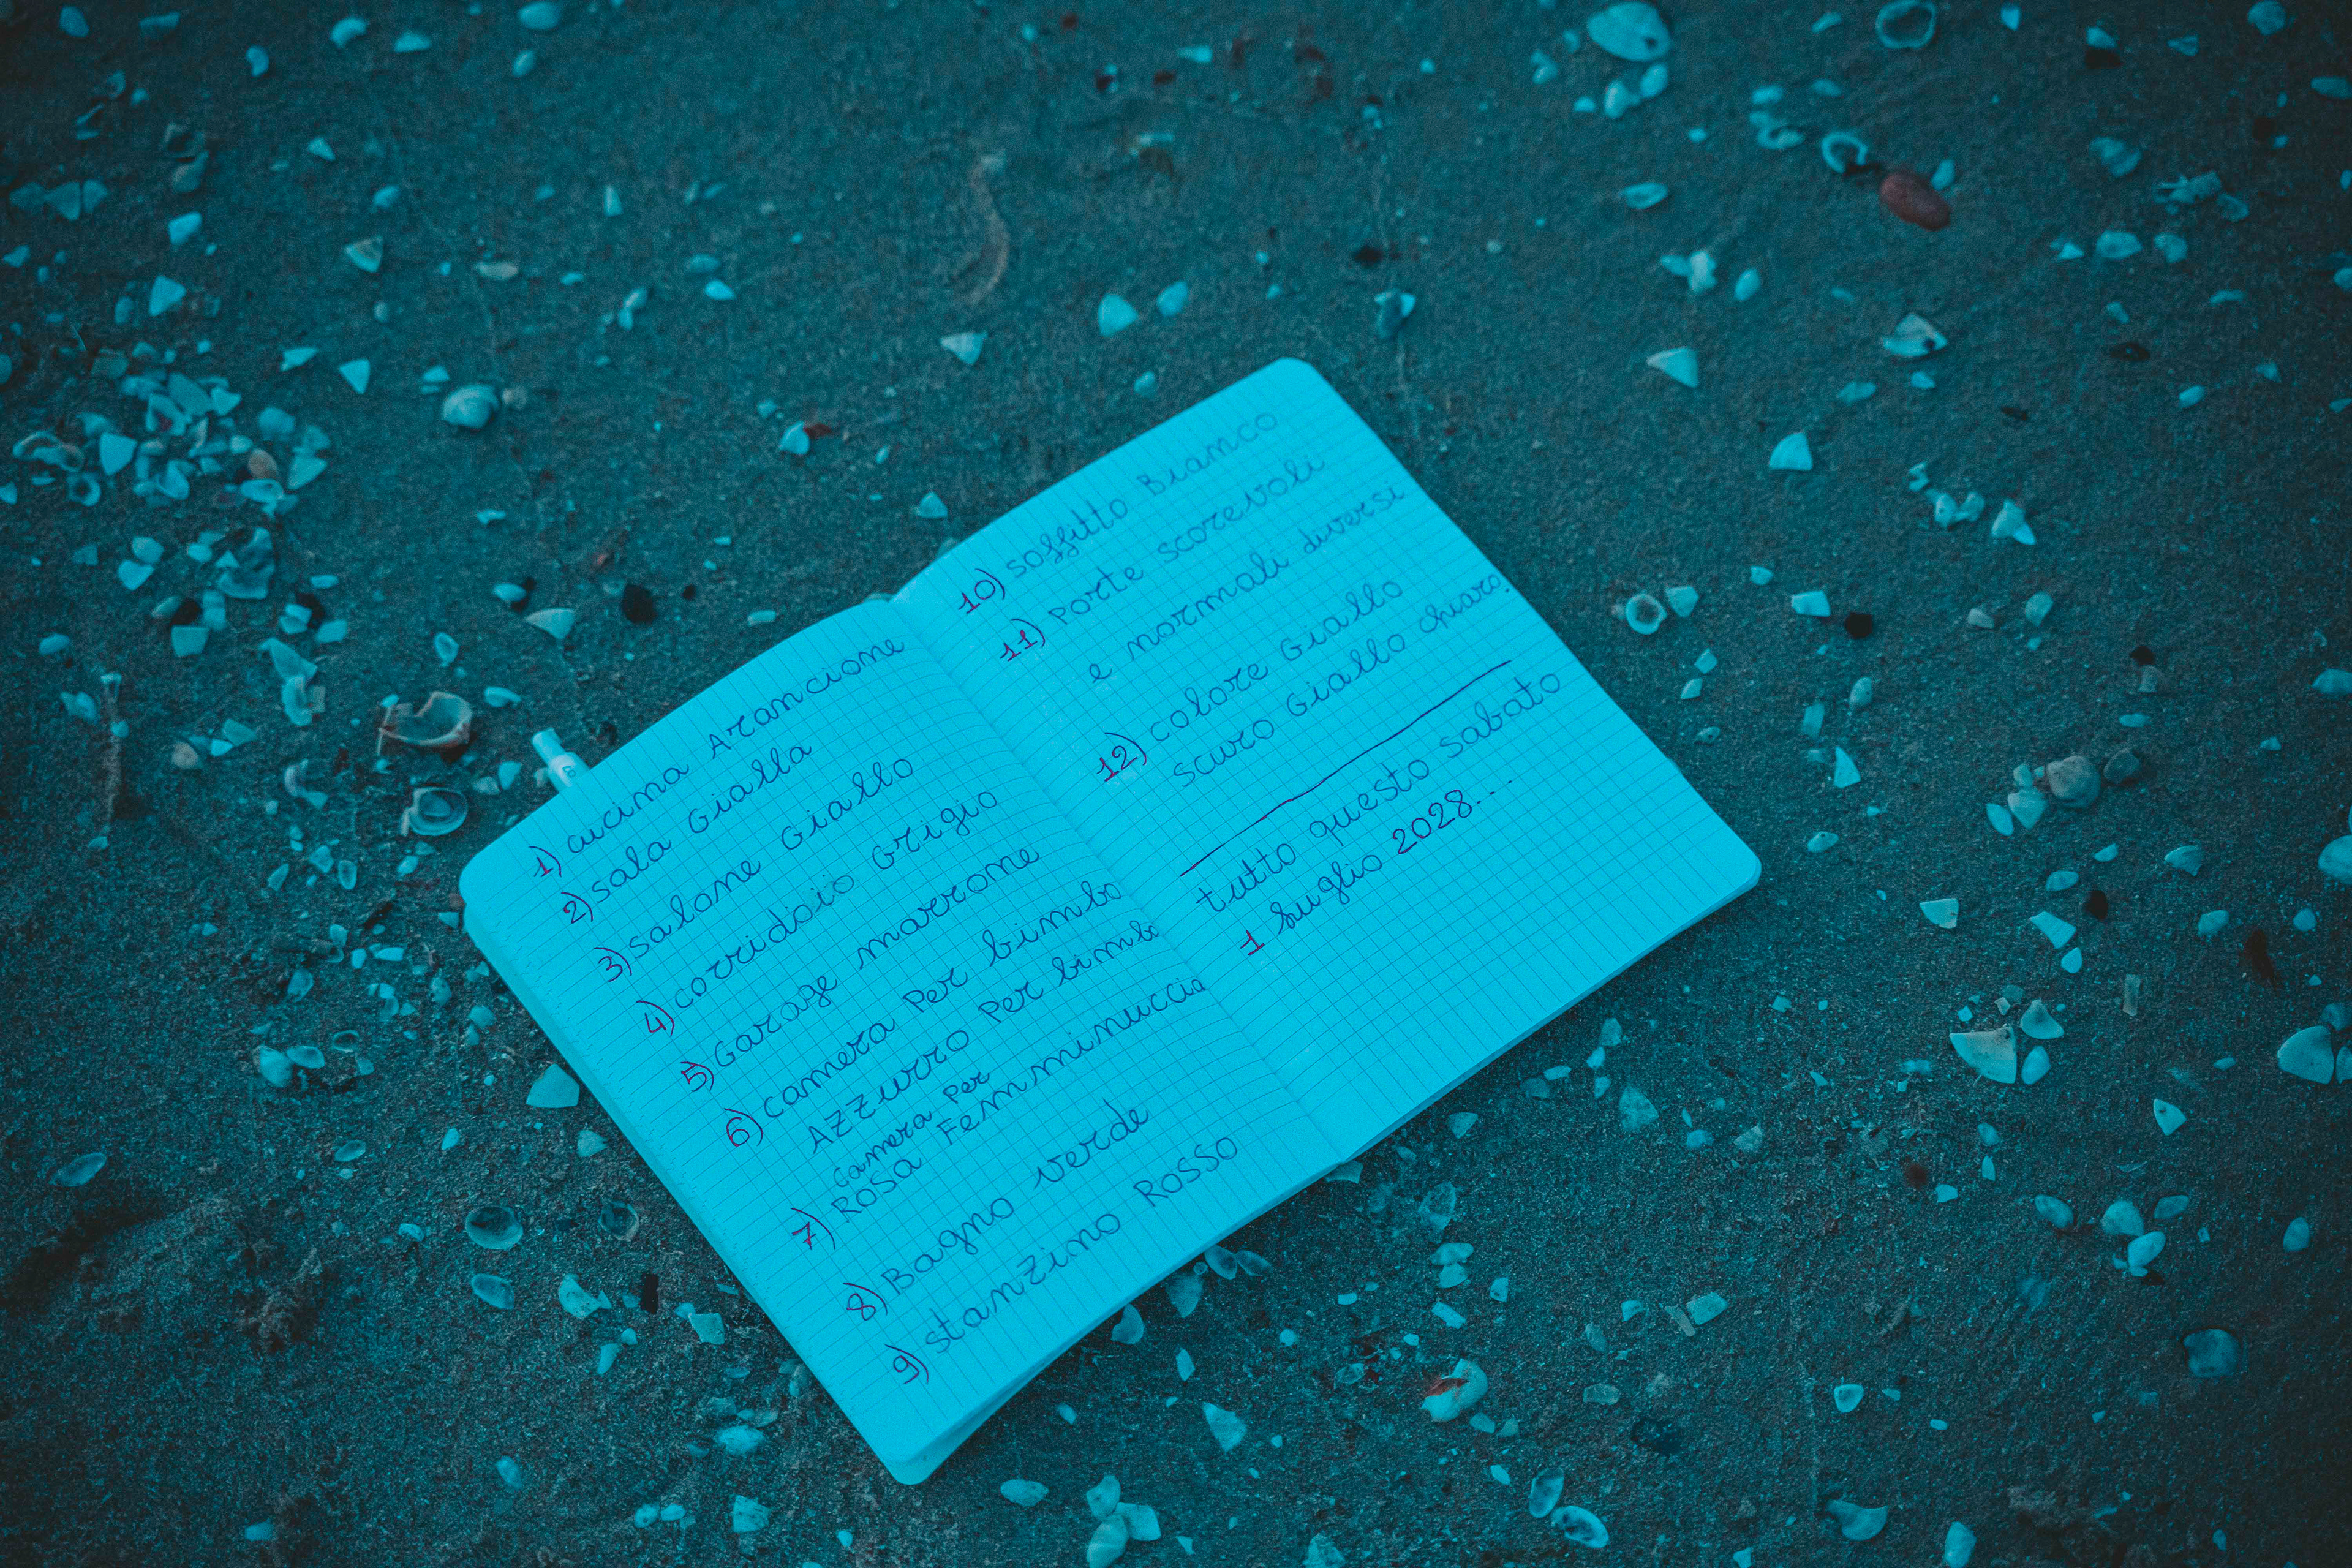 1) cucina Arancione
2) sala Gialla
3) salone Giallo
4) corridoio Grigio
5) Garage marrone
6) camera Per bimbo
AZZURRO Per bimbo
camera Per
7) ROSA Femminuccia
8) Bagno verde
9) stanzino Rosso
10) soffitto Bianco
11) Porte scorevoli
e normali diversi
12) colore Giallo
scuro Giallo chiaro.
tutto questo sabato
1 luglio 2028...